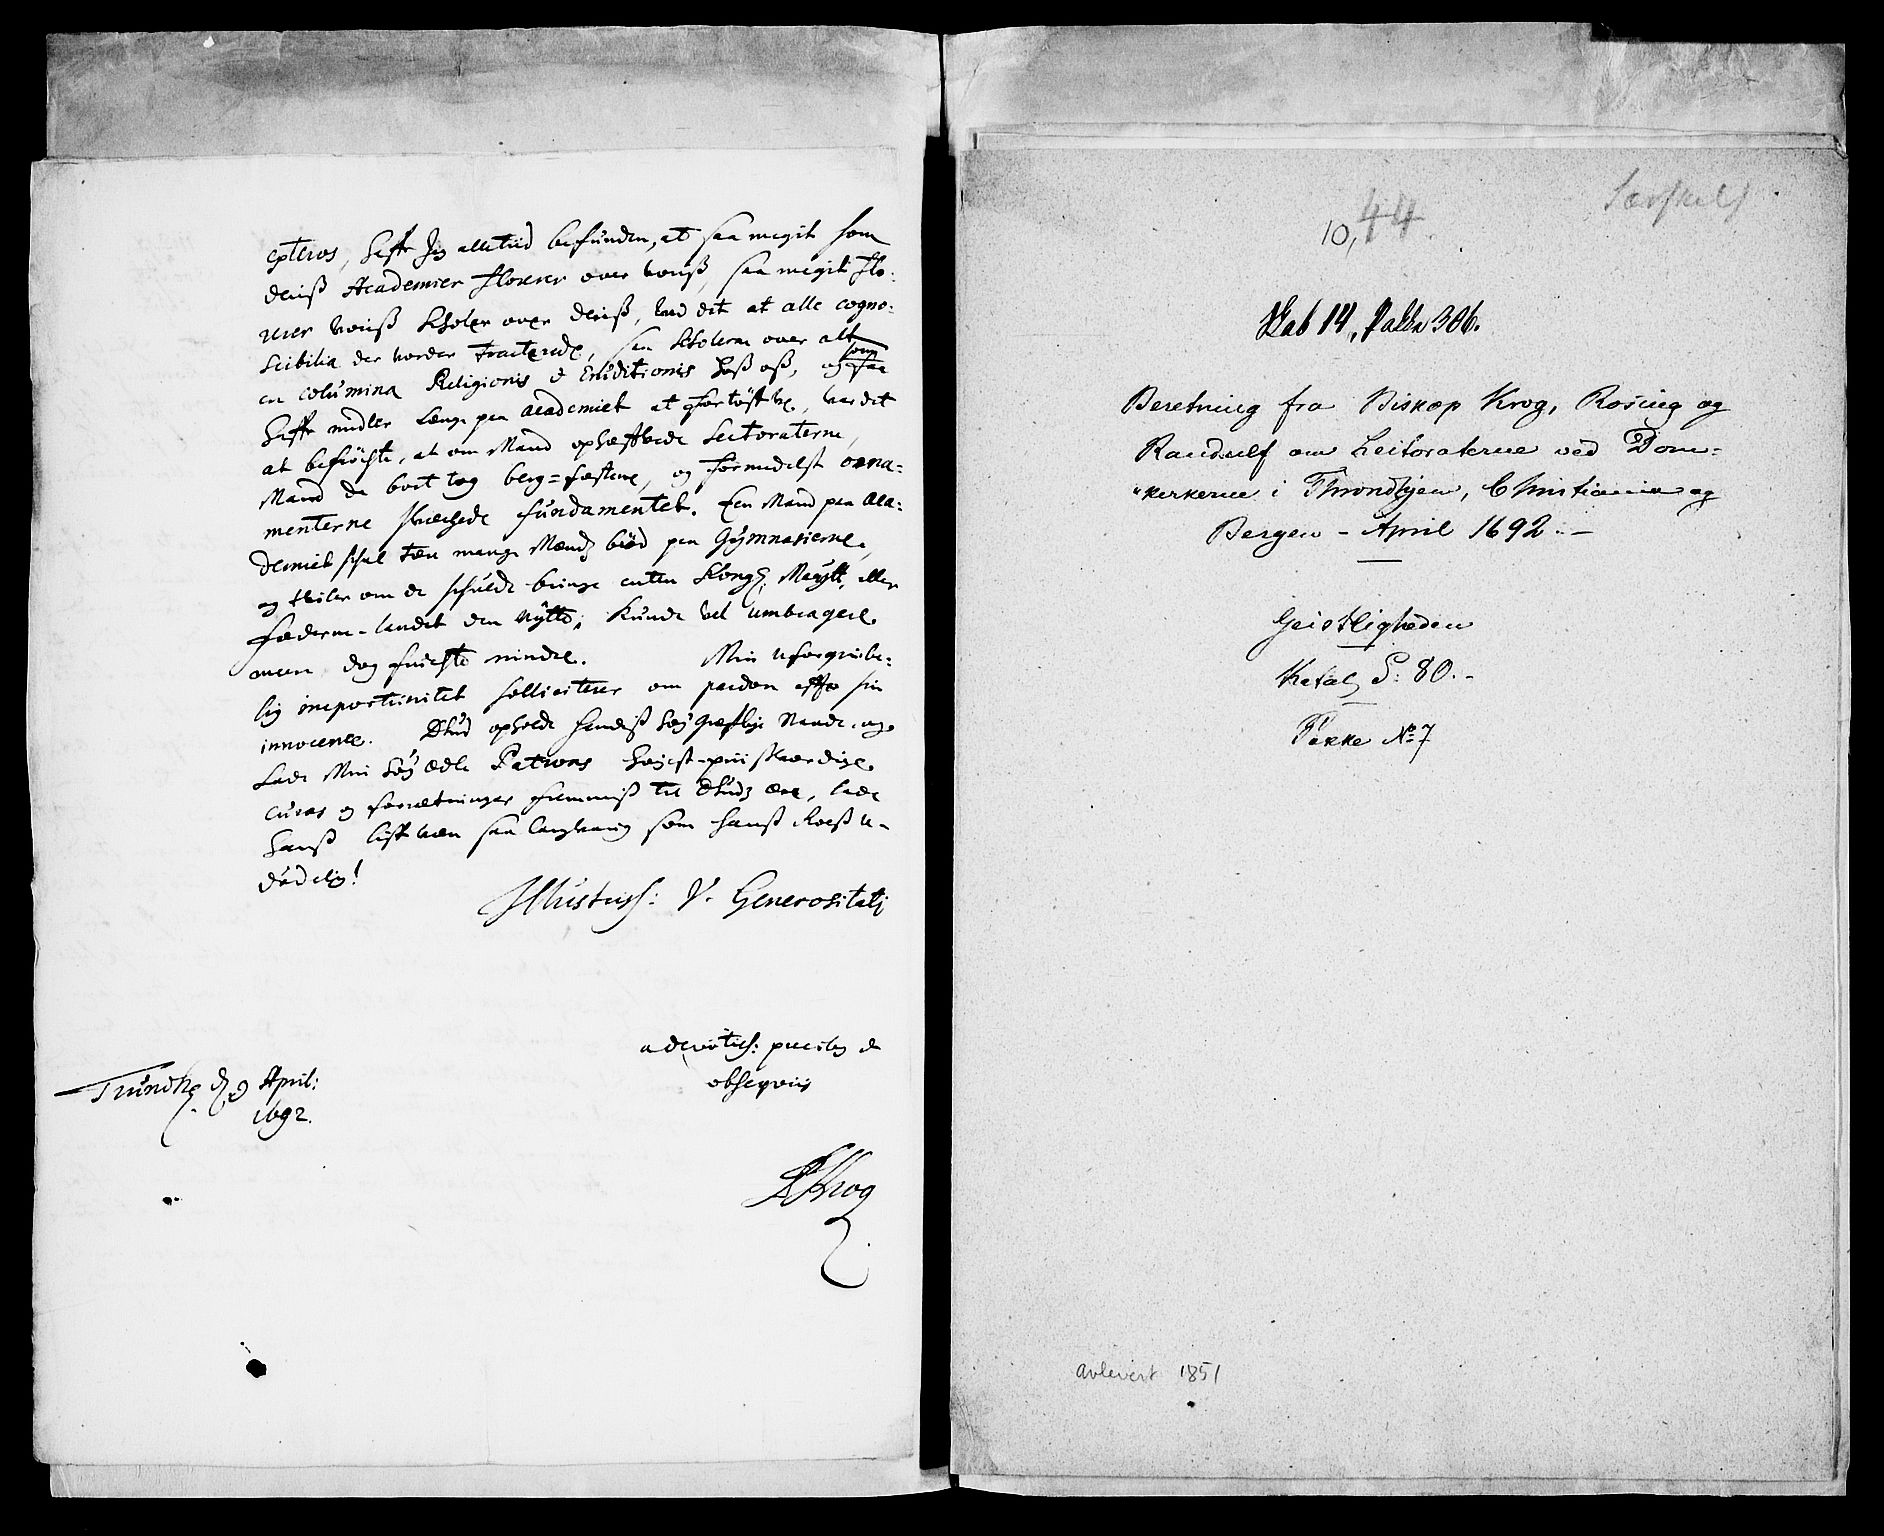 epteros, hafr Jeg alletiid befunden, at saa megit som
deriß Academier florerer over voriß, saa megit flo-
rerer voriß Scholer over deriß, ved det at alle cogno-
scibilia der vorder tracterede, saa Scholerne over alt
er columina Religionis & Eruditionis hoß oß, og som
hafr midler længe paa academiet at
at befrÿchte, at om Mand ophæffvede Lectoraterne,
Mand da bort tog berg=fæstene, og formedelst orna-
menterne svechede fundamentet. Een Mand paa Aca-
demiet schal tæe mange Mænds brød paa Gymnasierne,
og tviler om de schulde bringe enten Kongl: Maÿtt. eller
fæderne-landet den nÿtte; kunde vel umbragere
meere dog frucht mindre. Min uforgribe-
lig importunitet solliciterer om pardon sin
innocence. Gud opholde hendiß høÿ Naade, og
lade Min høÿ ædle Patrons høyest-priisværdige
curas og forretninger fremmiß til Gudz ære, lade
hanß liff være saa langvarig som hanß Roeß u-
dødelig!
Illustriss: V. Generositatj
adevotiss: precibg &
obseqviis
Trundhe d. April:
1692.
Krog
Særskilt
10, 44
Skab 14, Pakke 306.
Beretning fra Biskop Krog, Rosing og
Randulf om Lectoraterne ved Dom-
"kirkerne i Throndhjem, Christiania og
Bergen - April 1692.-
Geistligheden
Katal. S: 80.-
Pakke No 7
avlevert 1851